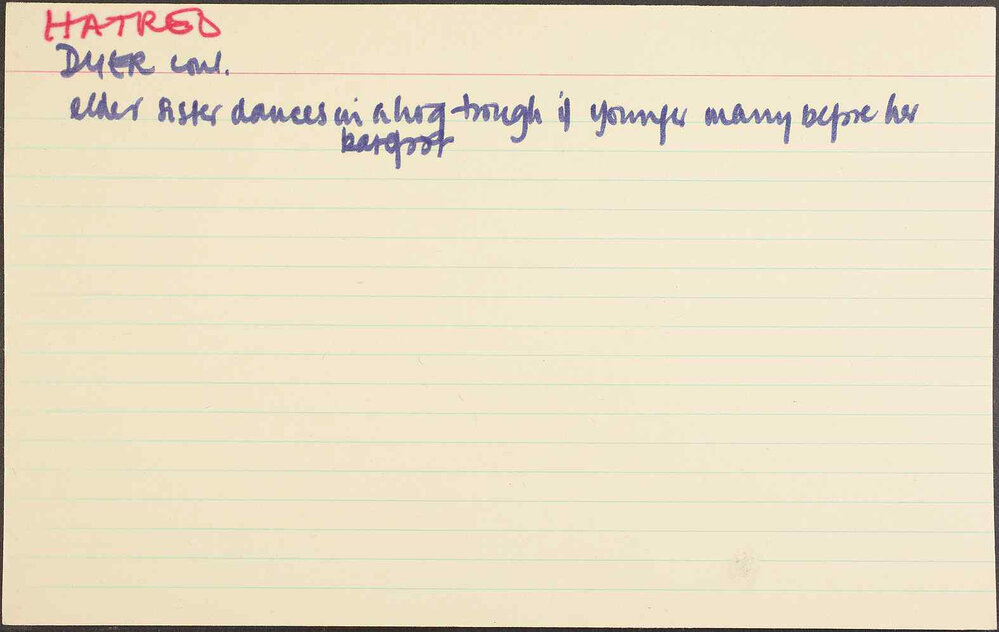 HATRED
DYER cont.
elder sister dances in a hog trough if younger marry before her
barefoot